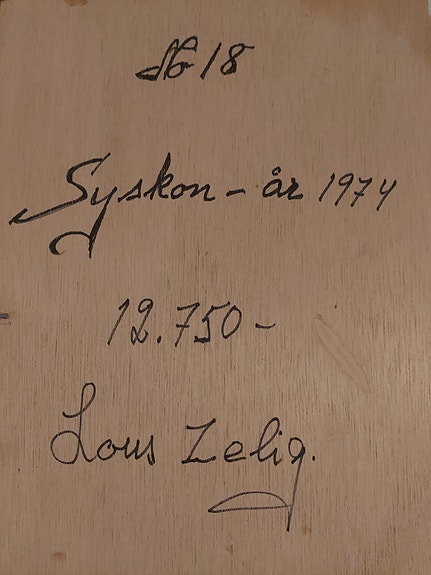 No 18
Syskon - år 1974
12.750 -
Lous Zelig.